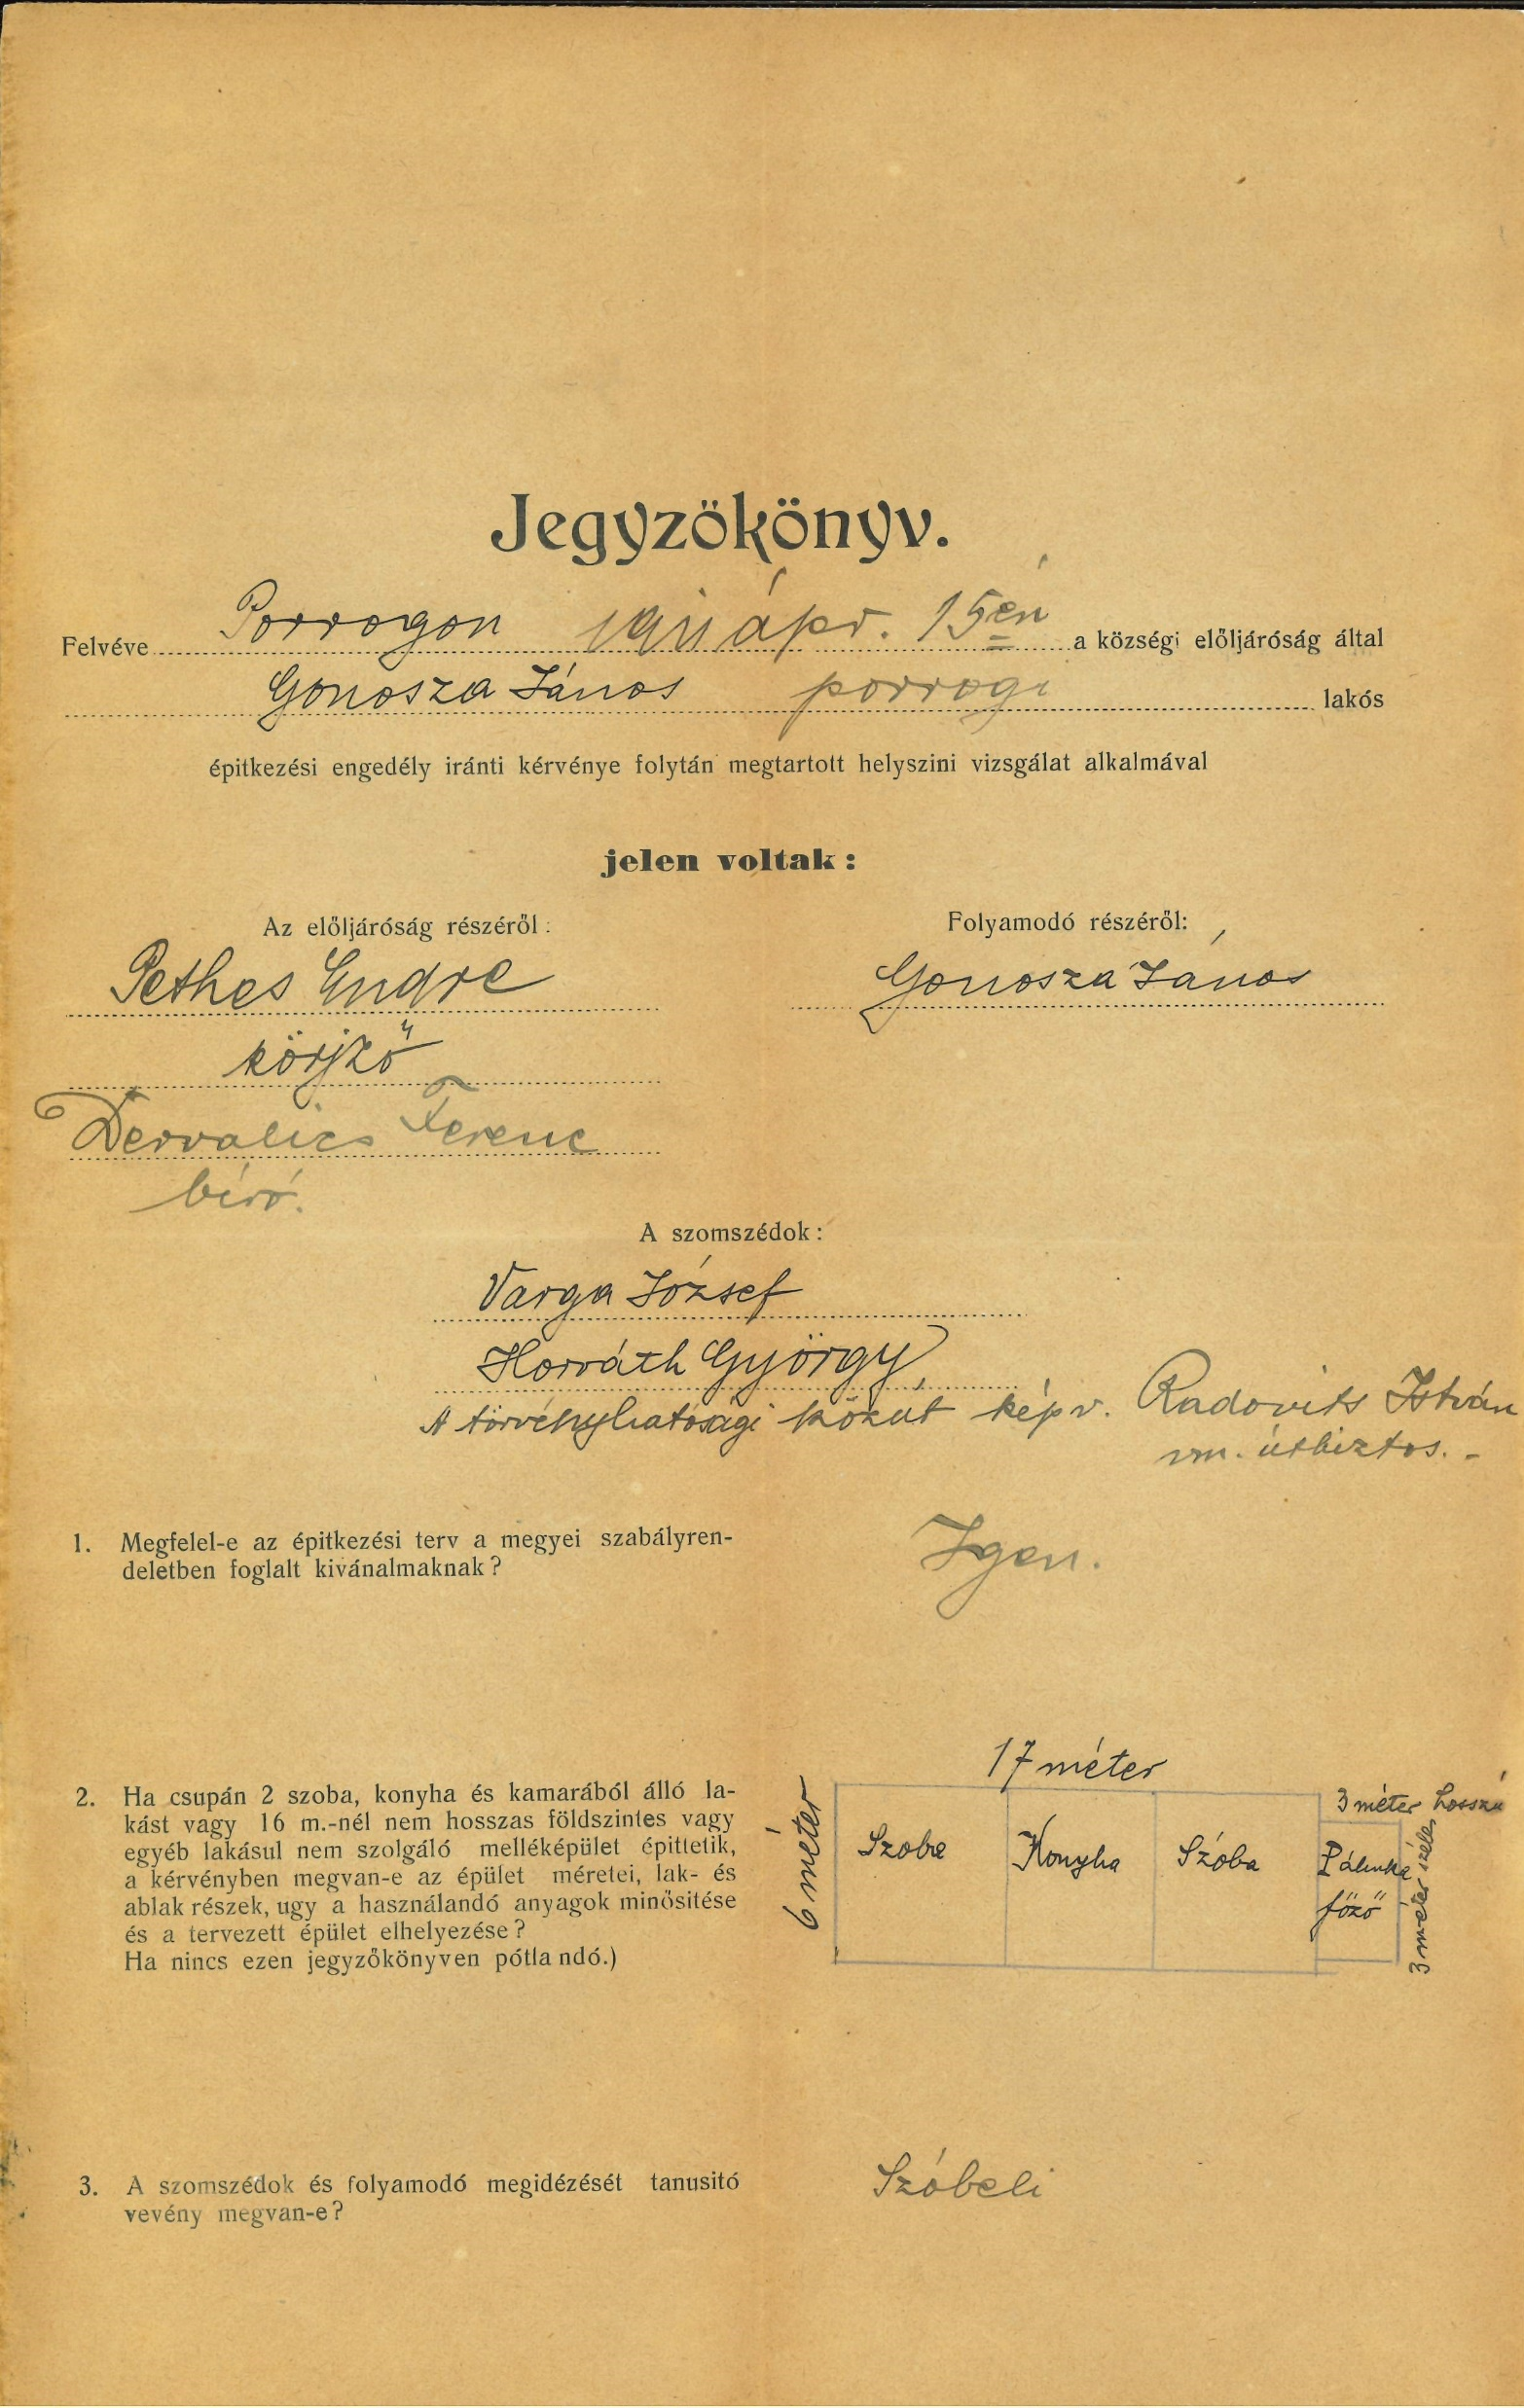 Jegyzökönyv.
Felvéve Porrogon ápr. 15én a községi előljáróság által
Gonosza János porrogi lakós
épitkezési engedély iránti kérvénye folytán megtartott helyszini vizsgálat alkalmával
jelen voltak:
Az előljáróság részéről:
Pethes Endre
körjző
Dervalics Ferenc
biró.
Folyamodó részéről:
Gonosza János
A szomszédok:
Varga József
Horváth György
A törvényhatósági közút képv. Radovits István
vm. útbiztos.-
1. Megfelel-e az épitkezési terv a megyei szabályren-
deletben foglalt kivánalmaknak?
Igen.
2. Ha csupán 2 szoba, konyha és kamarából álló la-
kást vagy 16 m.-nél nem hosszas földszintes vagy
egyéb lakásul nem szolgáló melléképület épittetik,
a kérvényben megvan-e az épület méretei, lak- és
ablak részek, ugy a használandó anyagok minősitése
és a tervezett épület elhelyezése?
Ha nincs ezen jegyzőkönyven pótlandó.)
17 méter
6 méter
Szoba
Konyha
Szóba
3 méter hosszú
Pálinka
főző
3 méter széles
3. A szomszédok és folyamodó megidézését tanusitó
vevény megvan-e?
Szóbeli